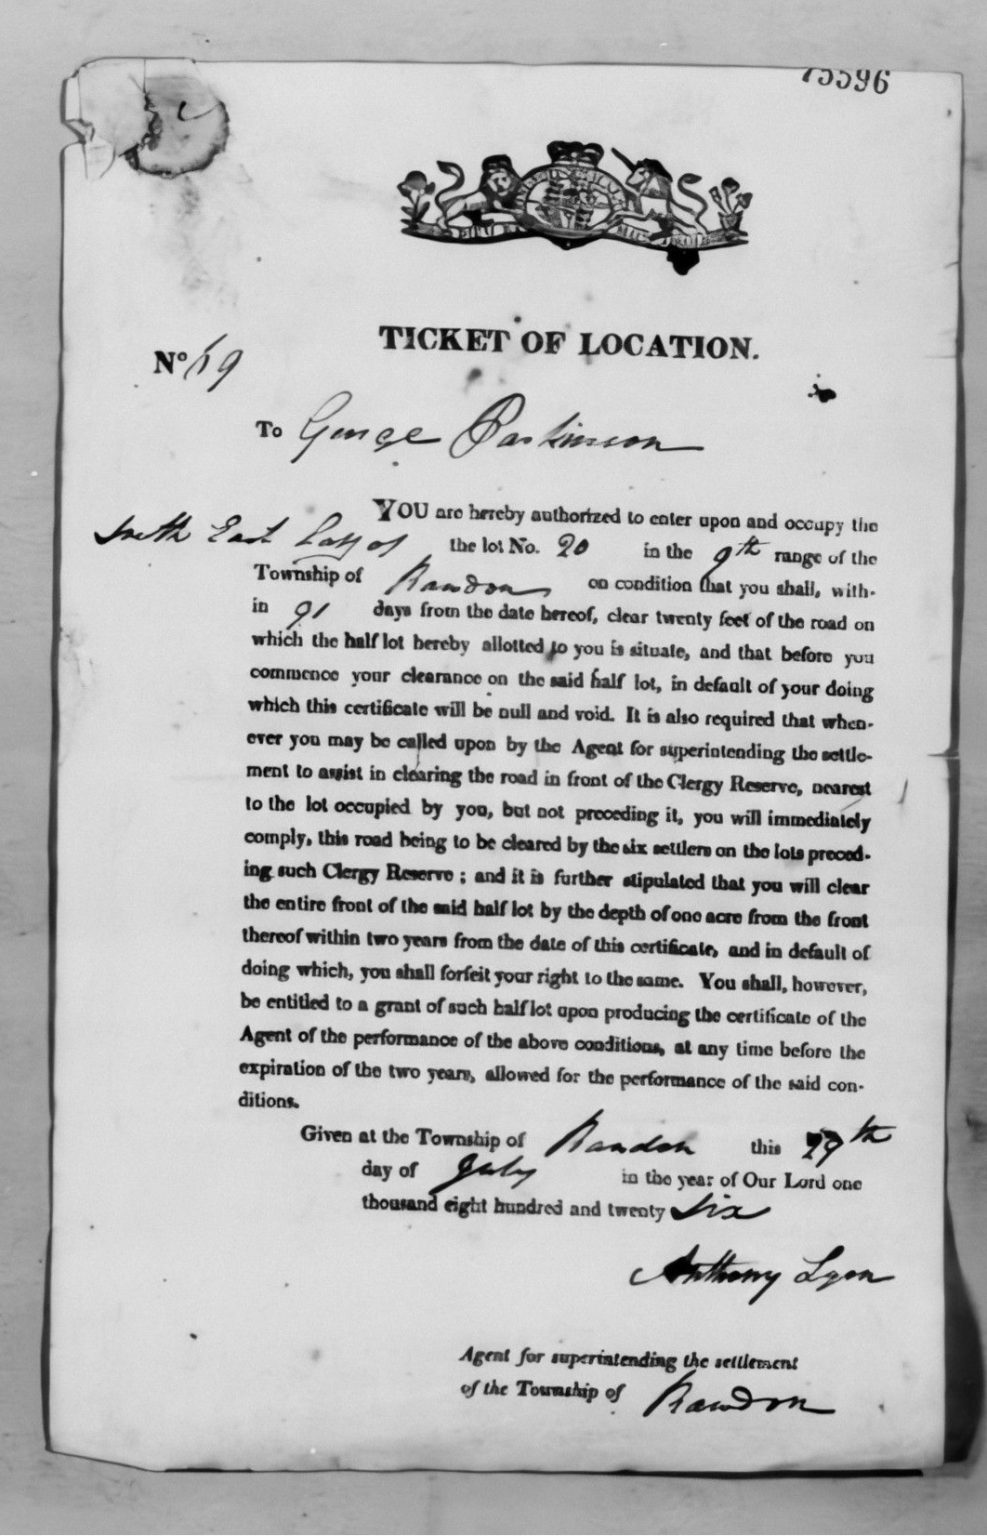 75596
TICKET OF LOCATION.
No 19
To George Parkinson
YOU are hereby authorized to enter upon and occupy the
South East half of the lot No. 20 in the 9th range of the
Township of Rawdon on condition that you shall, with-
in 91 days from the date hereof, clear twenty feet of the road on
which the half lot hereby allotted to you is situate, and that before you
commence your clearance on the said half lot, in default of your doing
which this certificate will be null and void. It is also required that when-
ever you may be called upon by the Agent for superintending the settle-
ment to assist in clearing the road in front of the Clergy Reserve, nearest
to the lot occupied by you, but not preceding it, you will immediately
comply, this road being to be cleared by the six settlers on the lots preced-
ing such Clergy Reserve; and it is further stipulated that you will clear
the entire front of the said half lot by the depth of one acre from the front
thereof within two years from the date of this certificate, and in default of
doing which, you shall forfeit your right to the same. You shall, however,
be entitled to a grant of such half lot upon producing the certificate of the
Agent of the performance of the above conditions, at any time before the
expiration of the two years, allowed for the performance of the said con-
ditions.
Given at the Township of Rawdon this 29th
day of July in the year of Our Lord one
thousand eight hundred and twenty Six
Anthony Lyon
Agent for superintending the settlement
of the Township of Rawdon